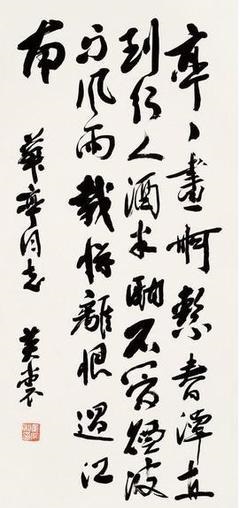 亭〻畫舸繫春潭直
到行人酒半酣不管煙波
与風雨載將離恨過江
南
華亭同志